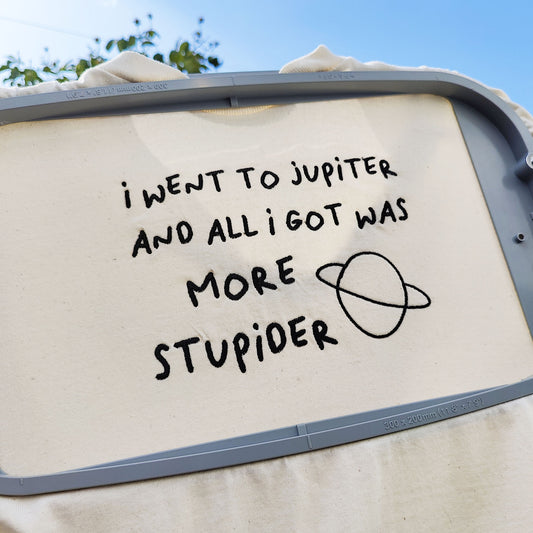 i WENT TO JUPiTER
AND ALL i GOT WAS
MORE
STUPiDER
360 x 200mm (14.2" x 7.9")